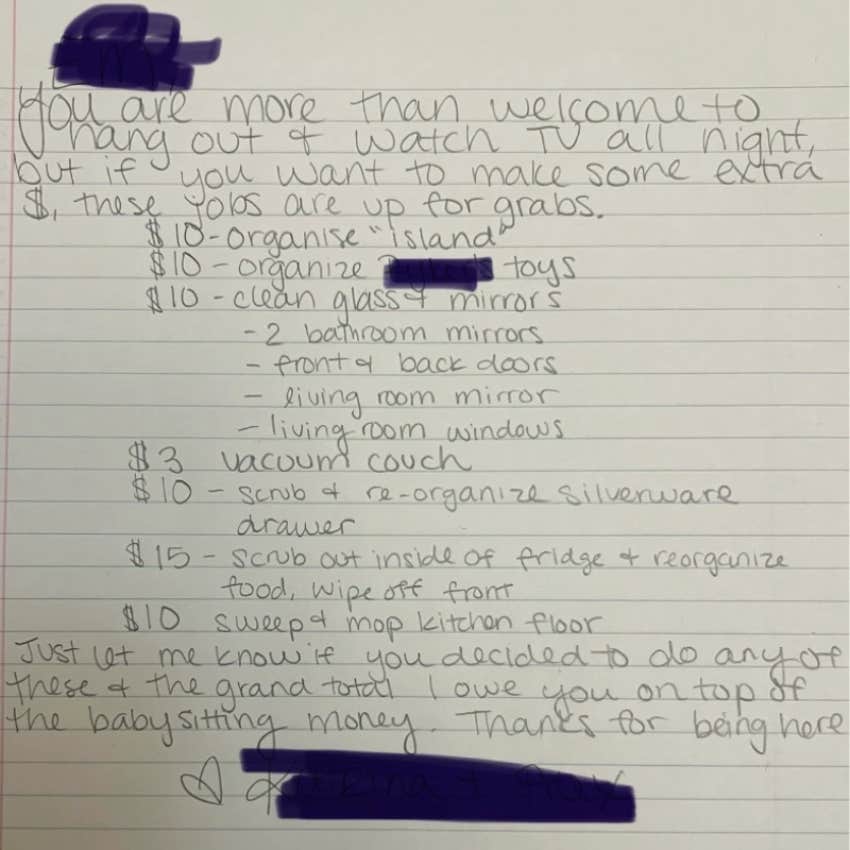 You are more than welcome to
hang out & watch TV all night,
but if you want to make some extra
$, these jobs are up for grabs.
$10 - organise "island"
$10 - organize toys
$10 - clean glass & mirrors
- 2 bathroom mirrors
- front & back doors
- living room mirror
- living room windows
$3 vacoum couch
$10 - scrub & re-organize silverware
drawer
$15 - scrub out inside of fridge & reorganize
food, wipe off front
$10 sweep & mop kitchen floor
Just let me know if you decided to do any of
these & the grand total I owe you on top of
the babysitting money. Thanks for being here